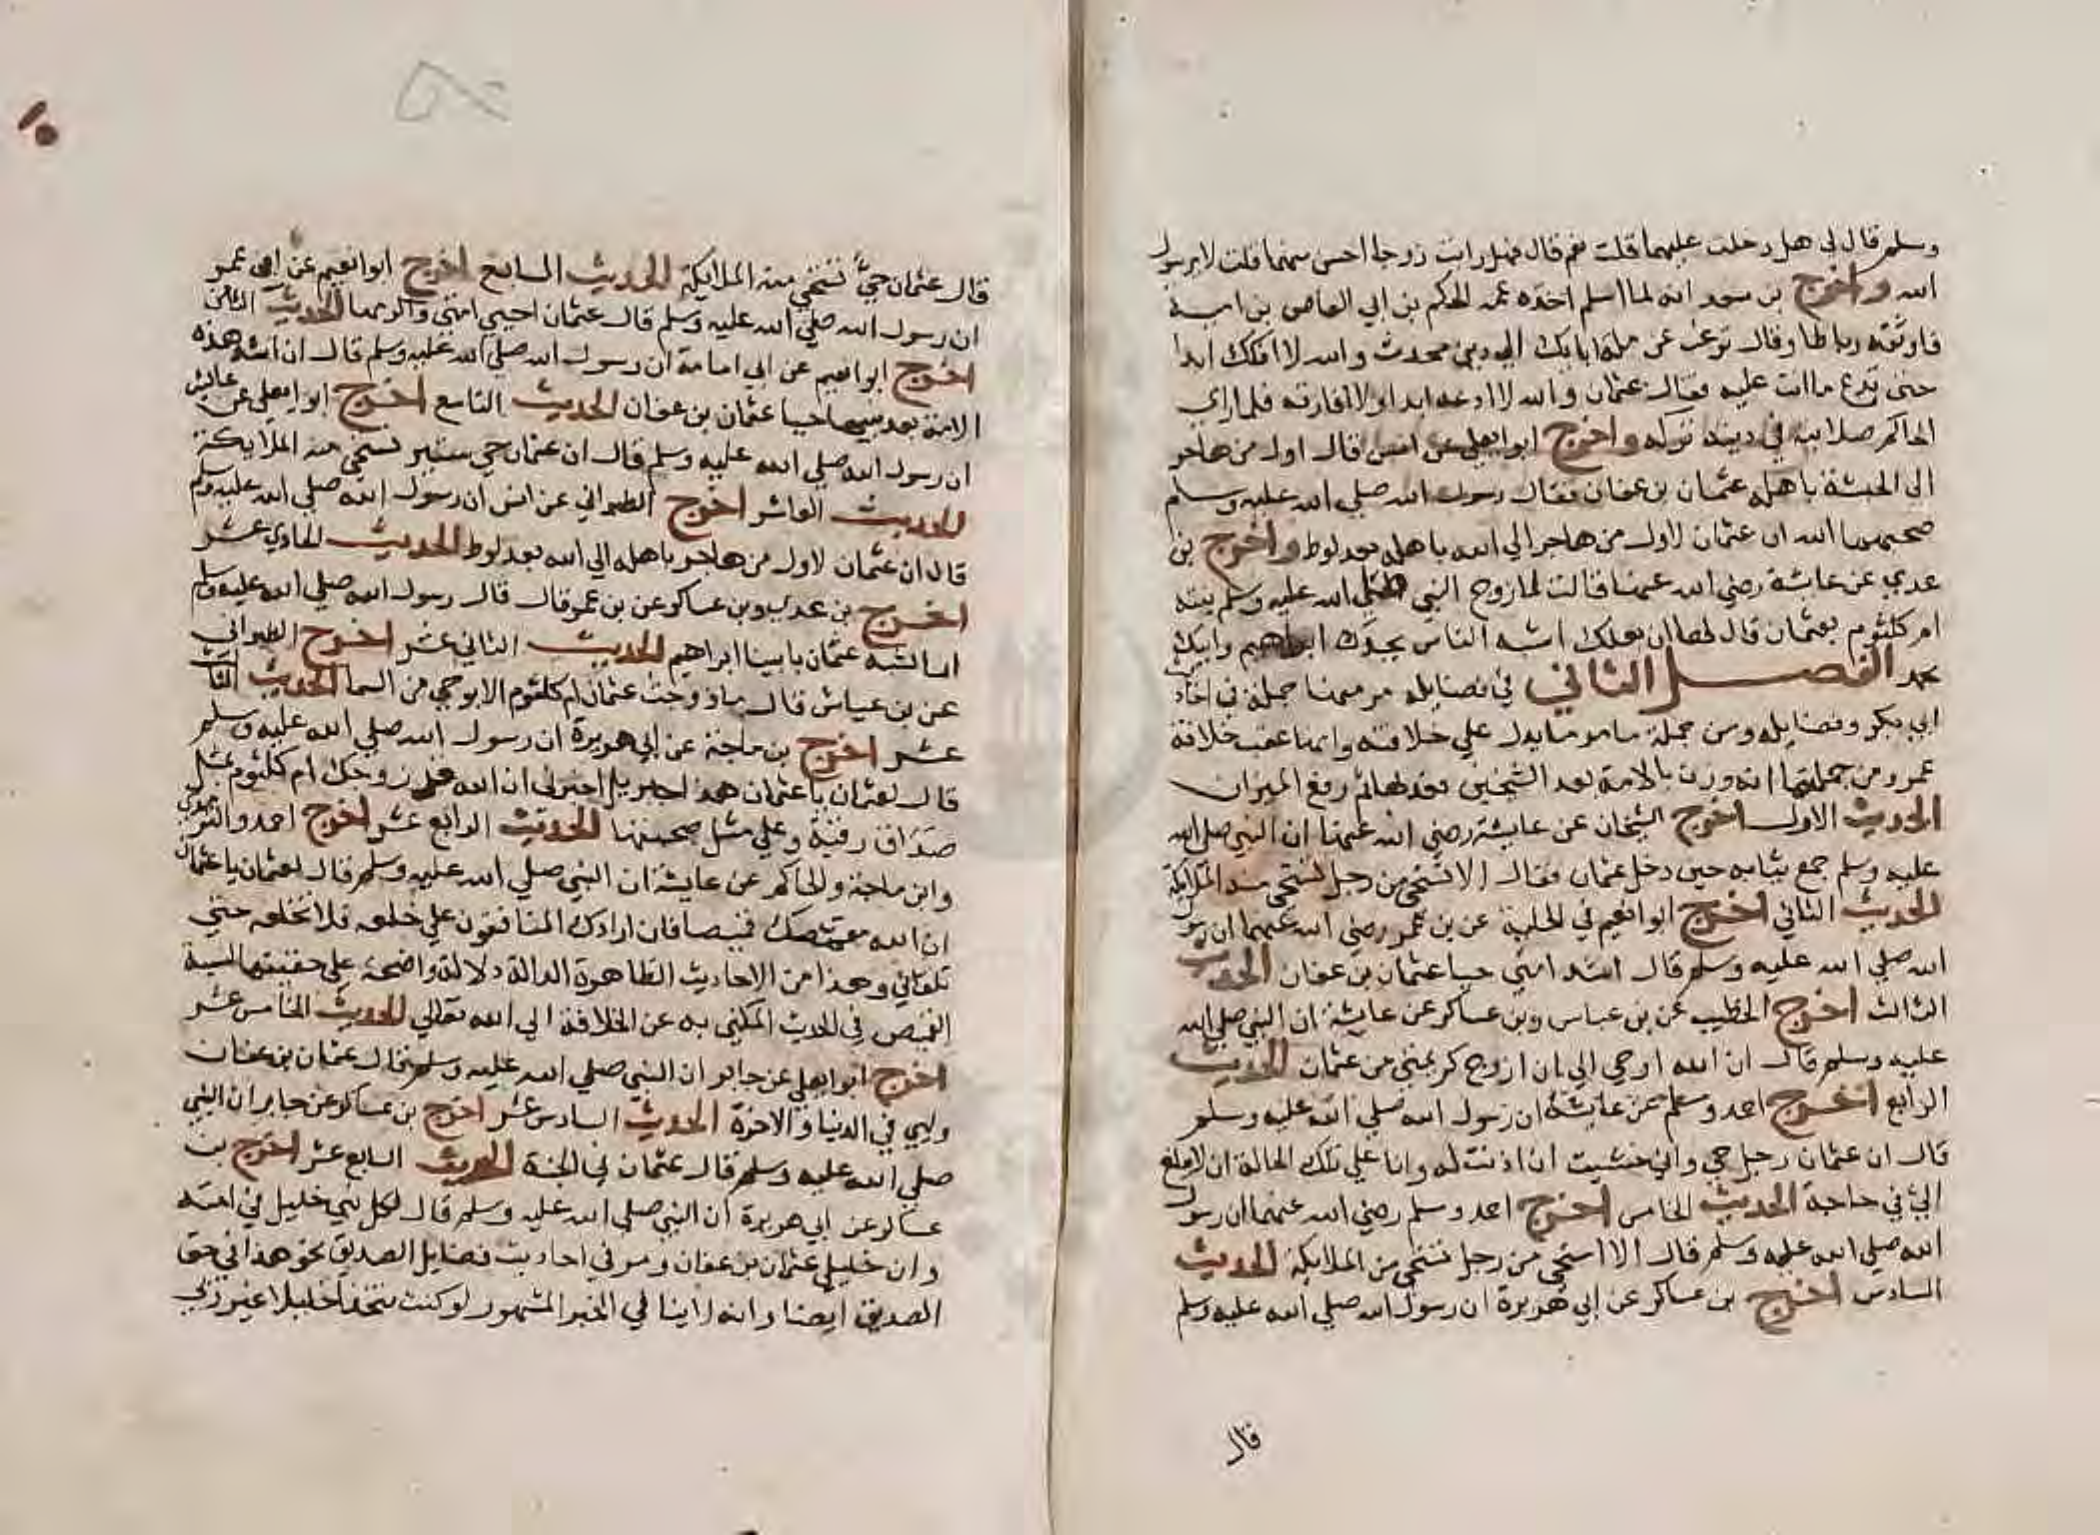 وسلم قال لي هل دخلت عليهما قلت نعم قال فهل رايت زوجا احسن منهما قلت لا يرسول
الله واخرج بن سعد انه لما اسلم اخذه عمه الحكم بن ابي العاص بن امية
فاوثقه رباطا وقال ترغب عن ملة ابايك الي دين محدث والله لا افكك ابدا
حتى تدع ما انت عليه فقال عثمان والله لا ادعه ابدا ولا افارقه فلما راي
الحاكم صلابته في دينه تركه واخرج ابو ايعلي عن انس قال اول من هاجر
الى الحبشة باهله عثمان بن عفان فقال رسول الله صلي الله عليه وسلم
صحبهما الله ان عثمان لاول من هاجر الي الله باهله بعد لوط واخرج بن
عدي عن عايشة رضي الله عنها قالت لما زوج النبي صلي الله عليه وسلم بنته
ام كلثوم بعثمان قال لها ان بعلك اشبه الناس بجدك ابراهيم وابيك
محمد الفصل الثاني في فضايله مر منها جملة في احاديث
ابي بكر وفضايله ومن جملة ما مر ما يدل علي خلافته وانها عقب خلافة
عمر ومن جملتها انه وزن بالامة بعد الشيخين فعدلها ثم رفع الميزان
الحديث الاول اخرج الشيخان عن عايشة رضي الله عنها ان النبي صلي الله
عليه وسلم جمع ثيابه حين دخل عثمان فقال الا نستحي من رجل تستحي منه الملايكة
الحديث الثاني اخرج ابو انعيم في الحلية عن بن عمر رضي الله عنهما ان رسول
الله صلي الله عليه وسلم قال اشد امتي حيا عثمان بن عفان الحديث
الثالث اخرج الخطيب عن بن عباس وبن عساكر عن عايشة ان النبي صلي الله
عليه وسلم قال ان الله اوحي الي ان ازوج كريمتي من عثمان الحديث
الرابع اخرج احمد ومسلم عن عايشة ان رسول الله صلي الله عليه وسلم
قال ان عثمان رجل حي واني خشيت ان اذنت له وانا علي تلك الحالة ان لا يبلغ
الي في حاجة الحديث الخامس اخرج احمد ومسلم رضي الله عنهما ان رسول
الله صلي الله عليه وسلم قال الا استحي من رجل تستحي من الملايكة الحديث
السادس اخرج بن عساكر عن ابي هريرة ان رسول الله صلي الله عليه وسلم
قال
قال عثمان حي تستحي منه الملايكة الحديث السابع اخرج ابو انعيم عن ابي عمر
ان رسول الله صلي الله عليه وسلم قال عثمان احيي امتي واكرمها الحديث الثامن
اخرج ابو انعيم عن ابي امامة ان رسول الله صلي الله عليه وسلم قال ان اشد هذه
الامة بعد نبيها حيا عثمان بن عفان الحديث التاسع اخرج ابو ايعلي عن عايشة
ان رسول الله صلي الله عليه وسلم قال ان عثمان حي ستير تستحي منه الملايكة
الحديث العاشر اخرج الطبراني عن انس ان رسول الله صلي الله عليه وسلم
قال ان عثمان لاول من هاجر باهله الي الله بعد لوط الحديث الحادي عشر
اخرج بن عدي وبن عساكر عن بن عمر قال قال رسول الله صلي الله عليه وسلم
انما نشبه عثمان بابينا ابراهيم الحديث الثاني عشر اخرج الطبراني
عن بن عياش قال ما زوجت عثمان ام كلثوم الا بوحي من السما الحديث الثالث
عشر اخرج بن ماجة عن ابي هريرة ان رسول الله صلي الله عليه وسلم
قال لعثمان يا عثمان هذا جبريل اخبرني ان الله قد زوجك ام كلثوم بمثل
صداق رقية وعلي مثل صحبتها الحديث الرابع عشر اخرج احمد والترمذي
وابن ماجة والحاكم عن عايشة ان النبي صلي الله عليه وسلم قال لعثمان يا عثمان
ان الله مقمصك قميصا فان ارادك المنافقون علي خلعه فلا تخلعه حتي
تلقاني وهذا من الاحاديث الظاهرة الدالة دلالة واضحة علي حقيقتها لنسبة
القميص في الحديث المكني به عن الخلافة الي الله تعالي الحديث الخامس عشر
اخرج ابو ايعلي عن جابر ان النبي صلي الله عليه وسلم قال عثمان بن عفان
وليي في الدنيا والاخرة الحديث السادس عشر اخرج بن عساكر عن جابر ان النبي
صلي الله عليه وسلم قال عثمان في الجنة الحديث السابع عشر اخرج بن
عساكر عن ابي هريرة ان النبي صلي الله عليه وسلم قال لكل نبي خليل في امته
وان خليلي عثمان بن عفان ومر في احاديث فضايل الصديق نحو هذا في حق
الصديق ايضا وانه لا ينافي الخبر المشهور لو كنت متخذا خليلا غير ربي